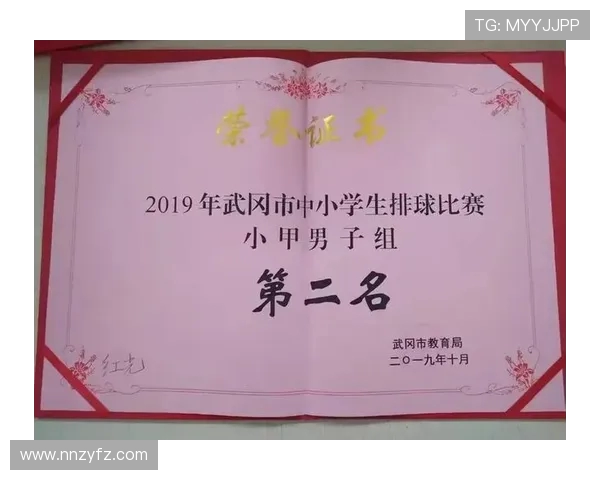 TG: MYYJJPP
荣誉证书
2019年武冈市中小学生排球比赛
小甲男子组
第二名
武冈市教育局
二〇一九年十月
红光
www.nnzyfz.com